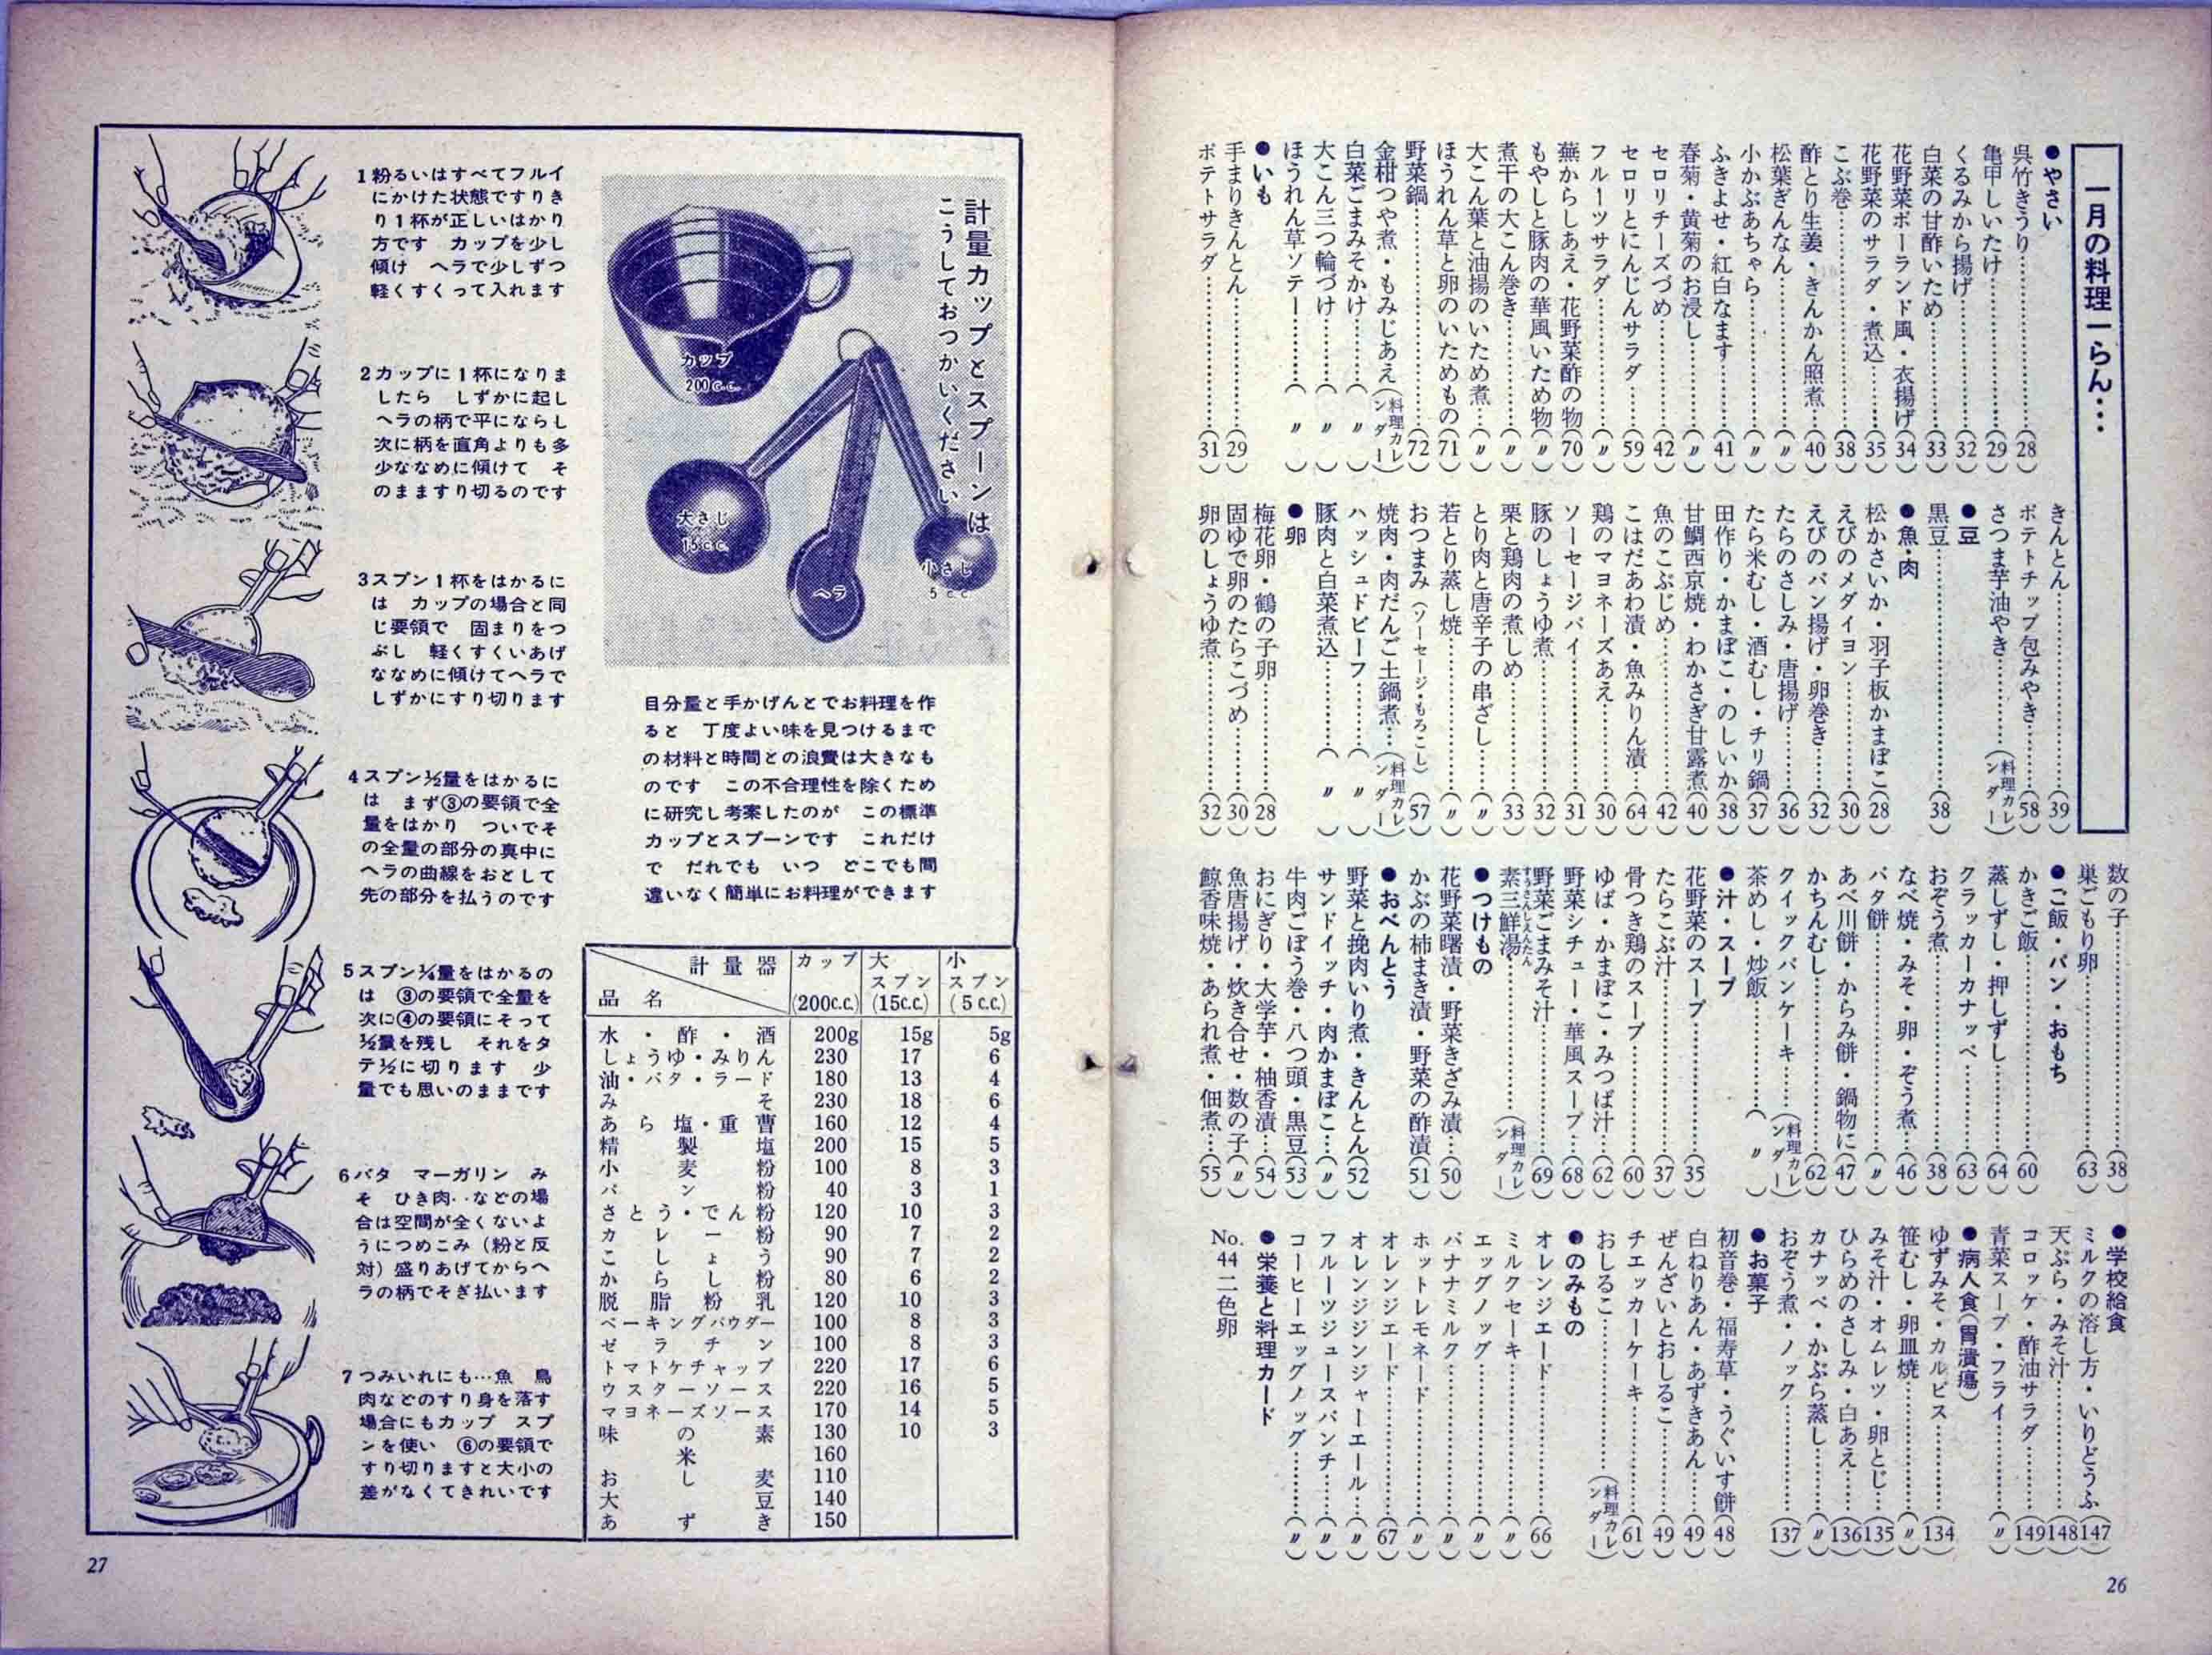 一月の料理一らん…
●やさい
呉竹きうり……(28)
亀甲しいたけ……(29)
くるみから揚げ……(32)
白菜の甘酢いため……(33)
花野菜ポーランド風・衣揚げ(34)
花野菜のサラダ・煮込……(35)
こぶ巻……(38)
酢とり生姜・きんかん照煮…(40)
松葉ぎんなん……(〃)
小かぶあちゃら……(〃)
ふきよせ・紅白なます……(41)
春菊・黄菊のお浸し……(〃)
セロリチーズづめ……(42)
セロリとにんじんサラダ……(59)
フルーツサラダ……(〃)
蕪からしあえ・花野菜酢の物(70)
もやしと豚肉の華風いため物(〃)
煮干の大こん巻き……(〃)
大こん葉と油揚のいため煮…(〃)
ほうれん草と卵のいためもの(71)
野菜鍋……(72)
金柑つや煮・もみじあえ(料理カレンダー)
白菜ごまみそかけ……(〃)
大こん三つ輪づけ……(〃)
ほうれん草ソテー……(〃)
●いも
手まりきんとん……(29)
ポテトサラダ……(31)
きんとん……(39)
ポテトチップ包みやき……(58)
さつま芋油やき……(料理カレンダー)
●豆
黒豆……(38)
●魚・肉
松かさいか・羽子板かまぼこ(28)
えびのメダイヨン……(30)
えびのパン揚げ・卵巻き……(32)
たらのさしみ・唐揚げ……(36)
たら米むし・酒むし・チリ鍋(37)
田作り・かまぼこ・のしいか(38)
甘鯛西京焼・わかさぎ甘露煮(40)
魚のこぶじめ……(42)
こはだあわ漬・魚みりん漬…(64)
鶏のマヨネーズあえ……(30)
ソーセージパイ……(31)
豚のしょうゆ煮……(32)
栗と鶏肉の煮しめ……(33)
とり肉と唐辛子の串ざし……(〃)
若とり蒸し焼……(〃)
おつまみ(ソーセージ・もろこし)(57)
焼肉・肉だんご土鍋煮…(料理カレンダー)
ハッシュドビーフ……(〃)
豚肉と白菜煮込……(〃)
●卵
梅花卵・鶴の子卵……(28)
固ゆで卵のたらこづめ……(30)
卵のしょうゆ煮……(32)
数の子……(38)
巣ごもり卵……(63)
●ご飯・パン・おもち
かきご飯……(60)
蒸しずし・押しずし……(64)
クラッカーカナッペ……(63)
おぞう煮……(38)
なべ焼・みそ・卵・ぞう煮…(46)
バタ餅……(〃)
あべ川餅・からみ餅・鍋物に(47)
かちんむし……(62)
クイックパンケーキ……(料理カレンダー)
茶めし・炒飯……(〃)
●汁・スープ
花野菜のスープ……(35)
たらこぶ汁……(37)
骨つき鶏のスープ……(60)
ゆば・かまぼこ・みつば汁…(62)
野菜シチュー・華風スープ…(68)
野菜ごまみそ汁……(69)
素三鮮湯……(料理カレンダー)
●つけもの
花野菜曙漬・野菜きざみ漬…(50)
かぶの柿まき漬・野菜の酢漬(51)
●おべんとう
野菜と挽肉いり煮・きんとん(52)
サンドイッチ・肉かまぼこ…(〃)
牛肉ごぼう巻・八つ頭・黒豆(53)
おにぎり・大学芋・柚香漬…(54)
魚唐揚げ・炊き合せ・数の子(〃)
鯨香味焼・あられ煮・佃煮…(55)
●学校給食
ミルクの溶し方・いりどうふ(147)
天ぷら・みそ汁……(148)
コロッケ・酢油サラダ……(149)
青菜スープ・フライ……(〃)
●病人食(胃潰瘍)
ゆずみそ・カルピス……(134)
笹むし・卵皿焼……(〃)
みそ汁・オムレツ・卵とじ…(135)
ひらめのさしみ・白あえ……(136)
カナッペ・かぶら蒸し……(〃)
おぞう煮・ノック……(137)
●お菓子
初音巻・福寿草・うぐいす餅(48)
白ねりあん・あずきあん……(49)
ぜんざいとおしるこ……(49)
チエッカーケーキ……(61)
おしるこ……(料理カレンダー)
●のみもの
オレンジエード……(66)
ミルクセーキ……(〃)
エッグノッグ……(〃)
バナナミルク……(〃)
ホットレモネード……(〃)
オレンジエード……(67)
オレンジジンジャーエール…(〃)
フルーツジュースパンチ……(〃)
コーヒーエッグノッグ……(〃)
●栄養と料理カード
No.44 二色卵
26
計量カップとスプーンは
こうしておつかいください
カップ
200c.c.
大さじ
15c.c.
ヘラ
小さじ
5c.c.
目分量と手かげんとでお料理を作
ると 丁度よい味を見つけるまで
の材料と時間との浪費は大きなも
のです この不合理性を除くため
に研究し考案したのが この標準
カップとスプーンです これだけ
で だれでも いつ どこでも間
違いなく簡単にお料理ができます
1粉るいはすべてフルイ
にかけた状態ですりき
り1杯が正しいはかり
方です カップを少し
傾け ヘラで少しずつ
軽くすくって入れます
2カップに1杯になりま
したら しずかに起し
ヘラの柄で平にならし
次に柄を直角よりも多
少ななめに傾けて そ
のまますり切るのです
3スプン1杯をはかるに
は カップの場合と同
じ要領で 固まりをつ
ぶし 軽くすくいあげ
ななめに傾けてヘラで
しずかにすり切ります
4スプン½量をはかるに
は まず③の要領で全
量をはかり ついでそ
の全量の部分の真中に
ヘラの曲線をおとして
先の部分を払うのです
5スプン¼量をはかるの
は ③の要領で全量を
次に④の要領にそって
½量を残し それをタ
テ½に切ります 少
量でも思いのままです
6バタ マーガリン み
そ ひき肉‥などの場
合は空間が全くないよ
うにつめこみ(粉と反
対)盛りあげてからヘ
ラの柄でそぎ払います
7つみいれにも…魚 鳥
肉などのすり身を落す
場合にもカップ スプ
ンを使い ⑥の要領で
すり切りますと大小の
差がなくてきれいです
計量器 カップ 大スプン 小スプン
品名 (200c.c.) (15c.c.) (5c.c.)
水・酢・酒 200g 15g 5g
しょうゆ・みりん 230 17 6
油・バタ・ラード 180 13 4
みそ 230 18 6
あら塩・重曹 160 12 4
精製塩 200 15 5
小麦粉 100 8 3
パン粉 40 3 1
さとう・でん粉 120 10 3
カレー粉 90 7 2
こしょう 90 7 2
からし粉 80 6 2
脱脂粉乳 120 10 3
ベーキングパウダー 100 8 3
ゼラチン 100 8 3
トマトケチャップ 220 17 6
ウスターソース 220 16 5
マヨネーズソース 170 14 5
味の素 130 10 3
米 160
おし麦 110
大豆 140
あずき 150
27